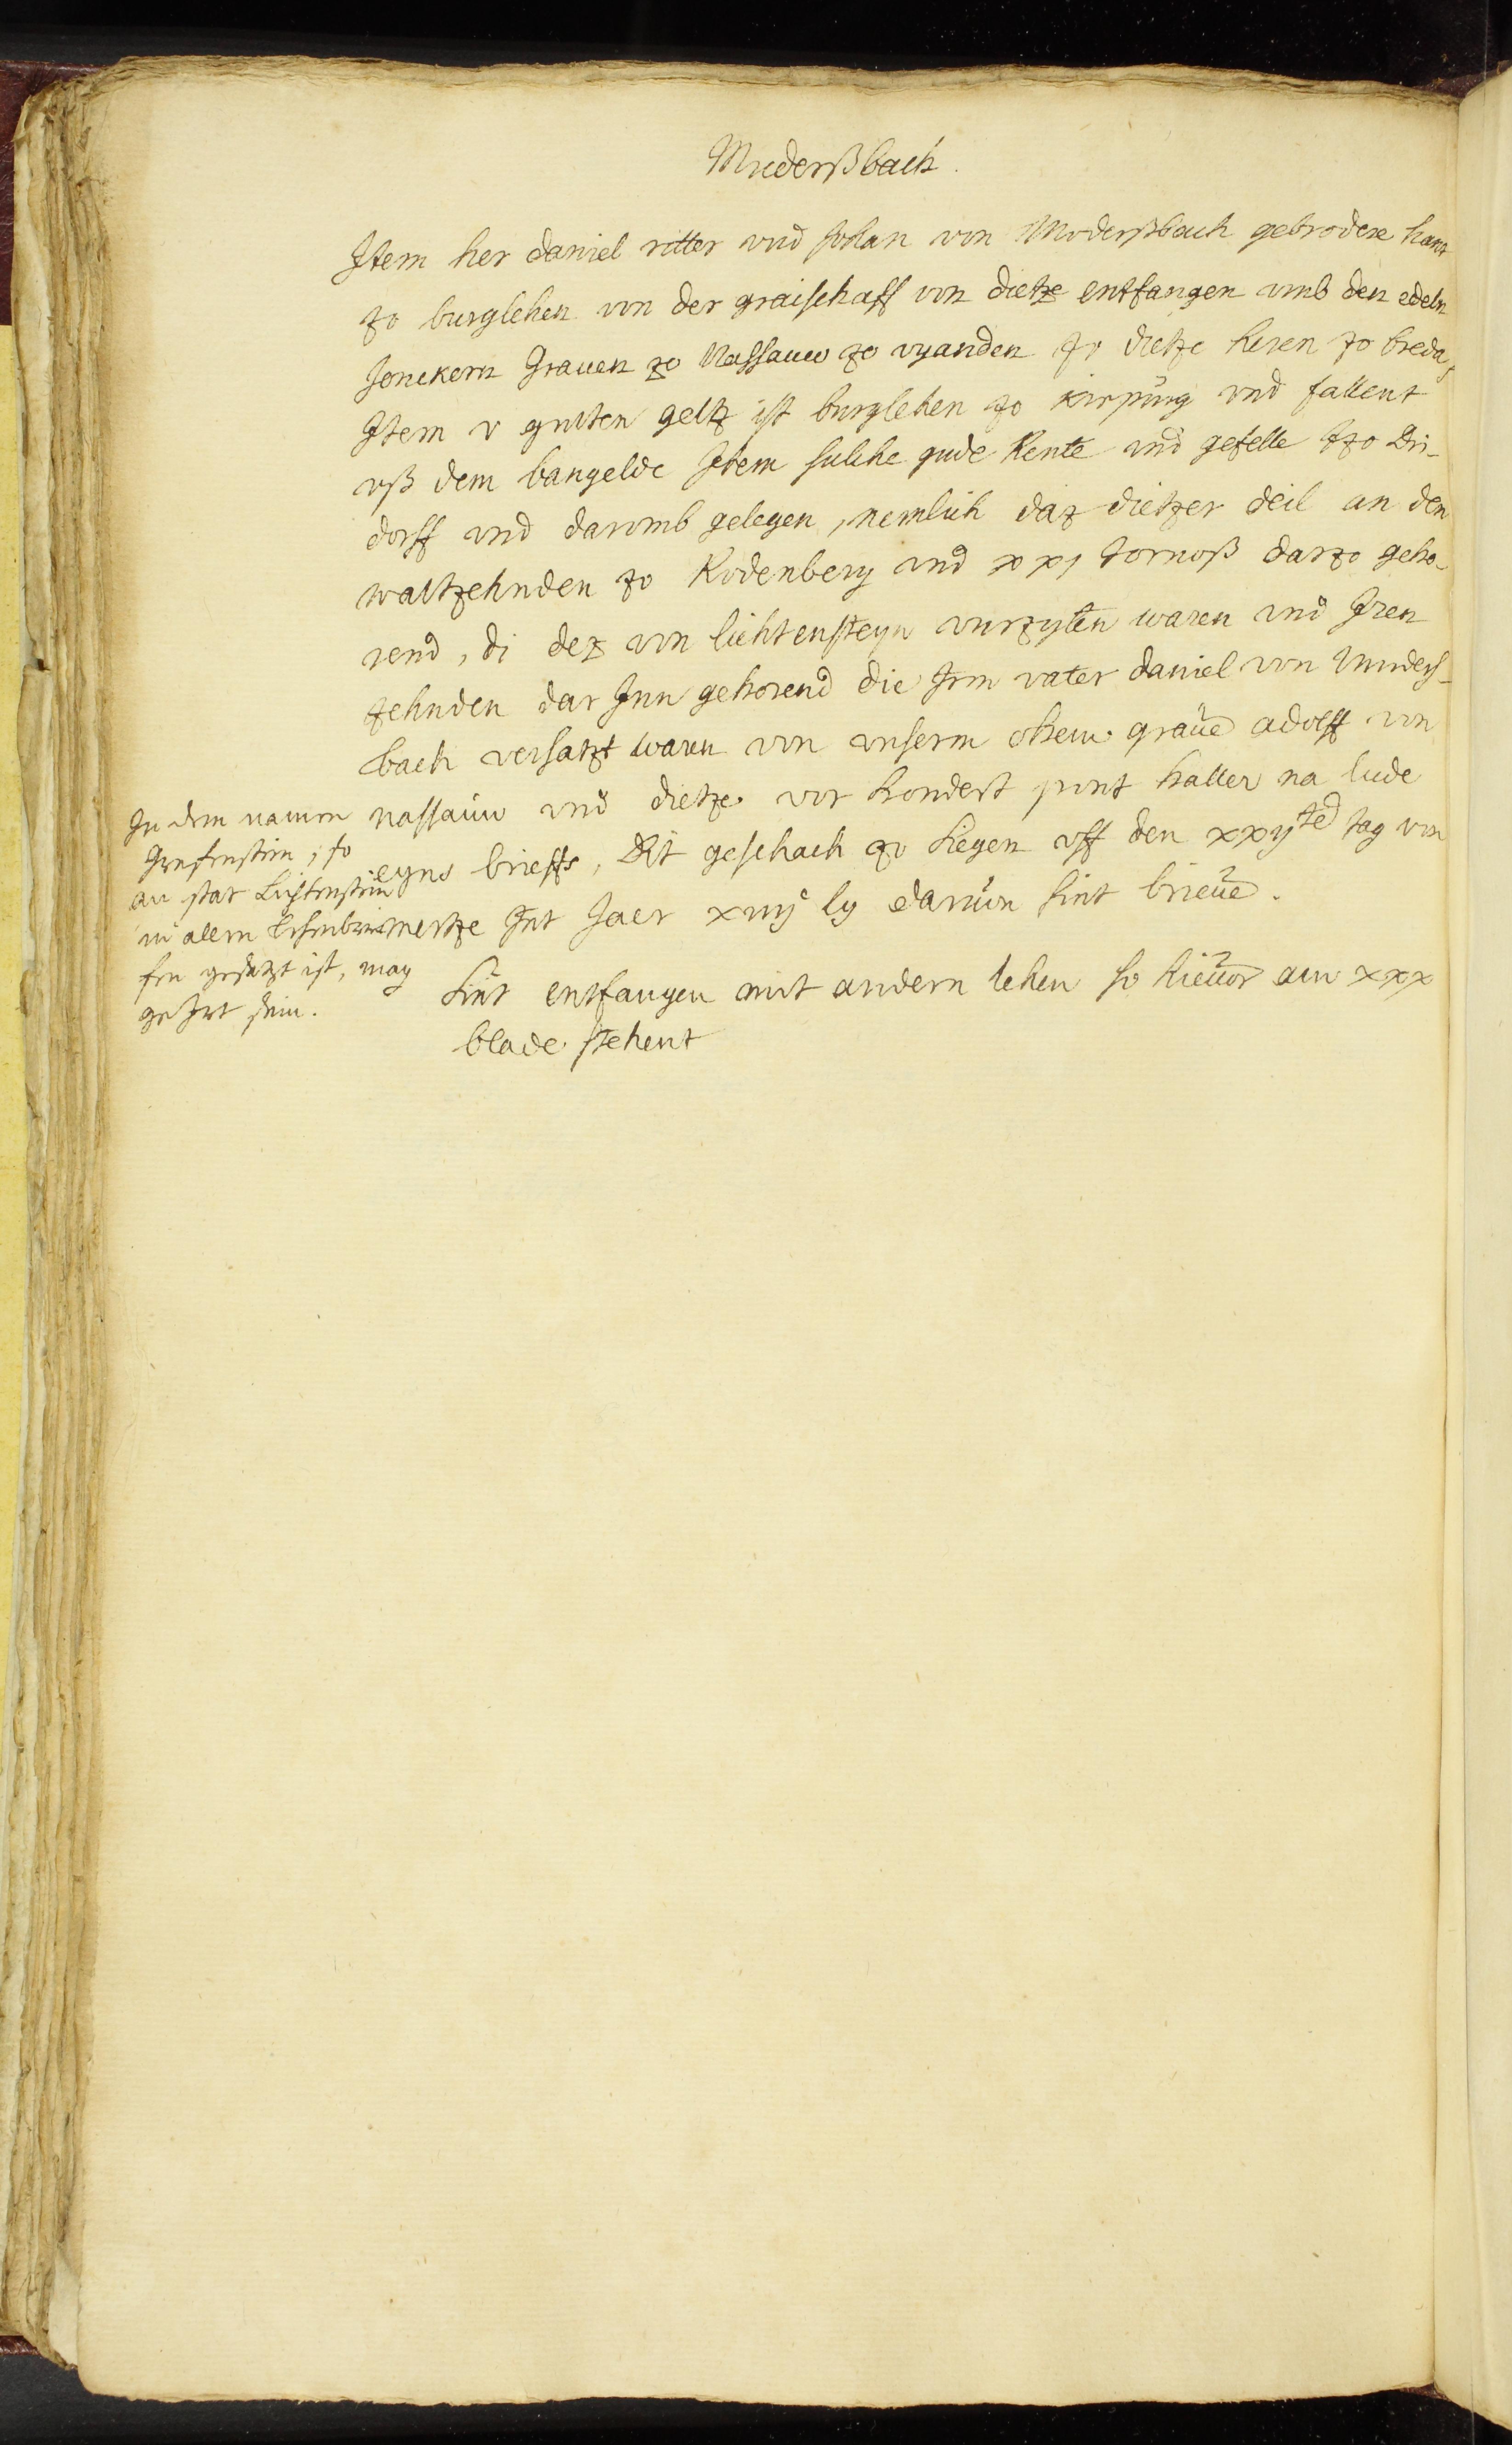 Mudersßbach.
Item her daniel ritter vnd Johan von Modersßbach gebrodere hant
zo burglehen von der graischaff von dietze entfangen vmb den edeln
Jonckern Grauen zo Nassauw zo vyanden zo dietze heren zo breda,
Item v gulten geltz ist burglehen zo kirpurg vnd fallent
vß dem bangelde Item suliche gude Rente vnd gefelle tzo Dri-
dorff vnd daromb gelegen, nemlich daz dietzer deil an den
waltzehnden zo Rodenberg vnd xxj tornoß darzo geho-
rend, di dez von lichtensteyn vurzyten waren vnd Iren
zehnden dar Inn gehorend die Irm vater daniel von Muders-
bach versatzt waren von vnserm ohem graue adolff von
nassauw vnd dietze vor hondert punt haller na lude
eyns brieffs, Dit geschach zo Siegen vff den xxij ted tag von
mertze Int Jaer xiiij ly daruon sint brieue.
Sint entfangen mit andern lehen so hieuor am xxx
blade stehent
In dem namen
Greifenstein, so
an stat Lichtenstein
in allem
gesatzt ist, mag
geIrt sein.